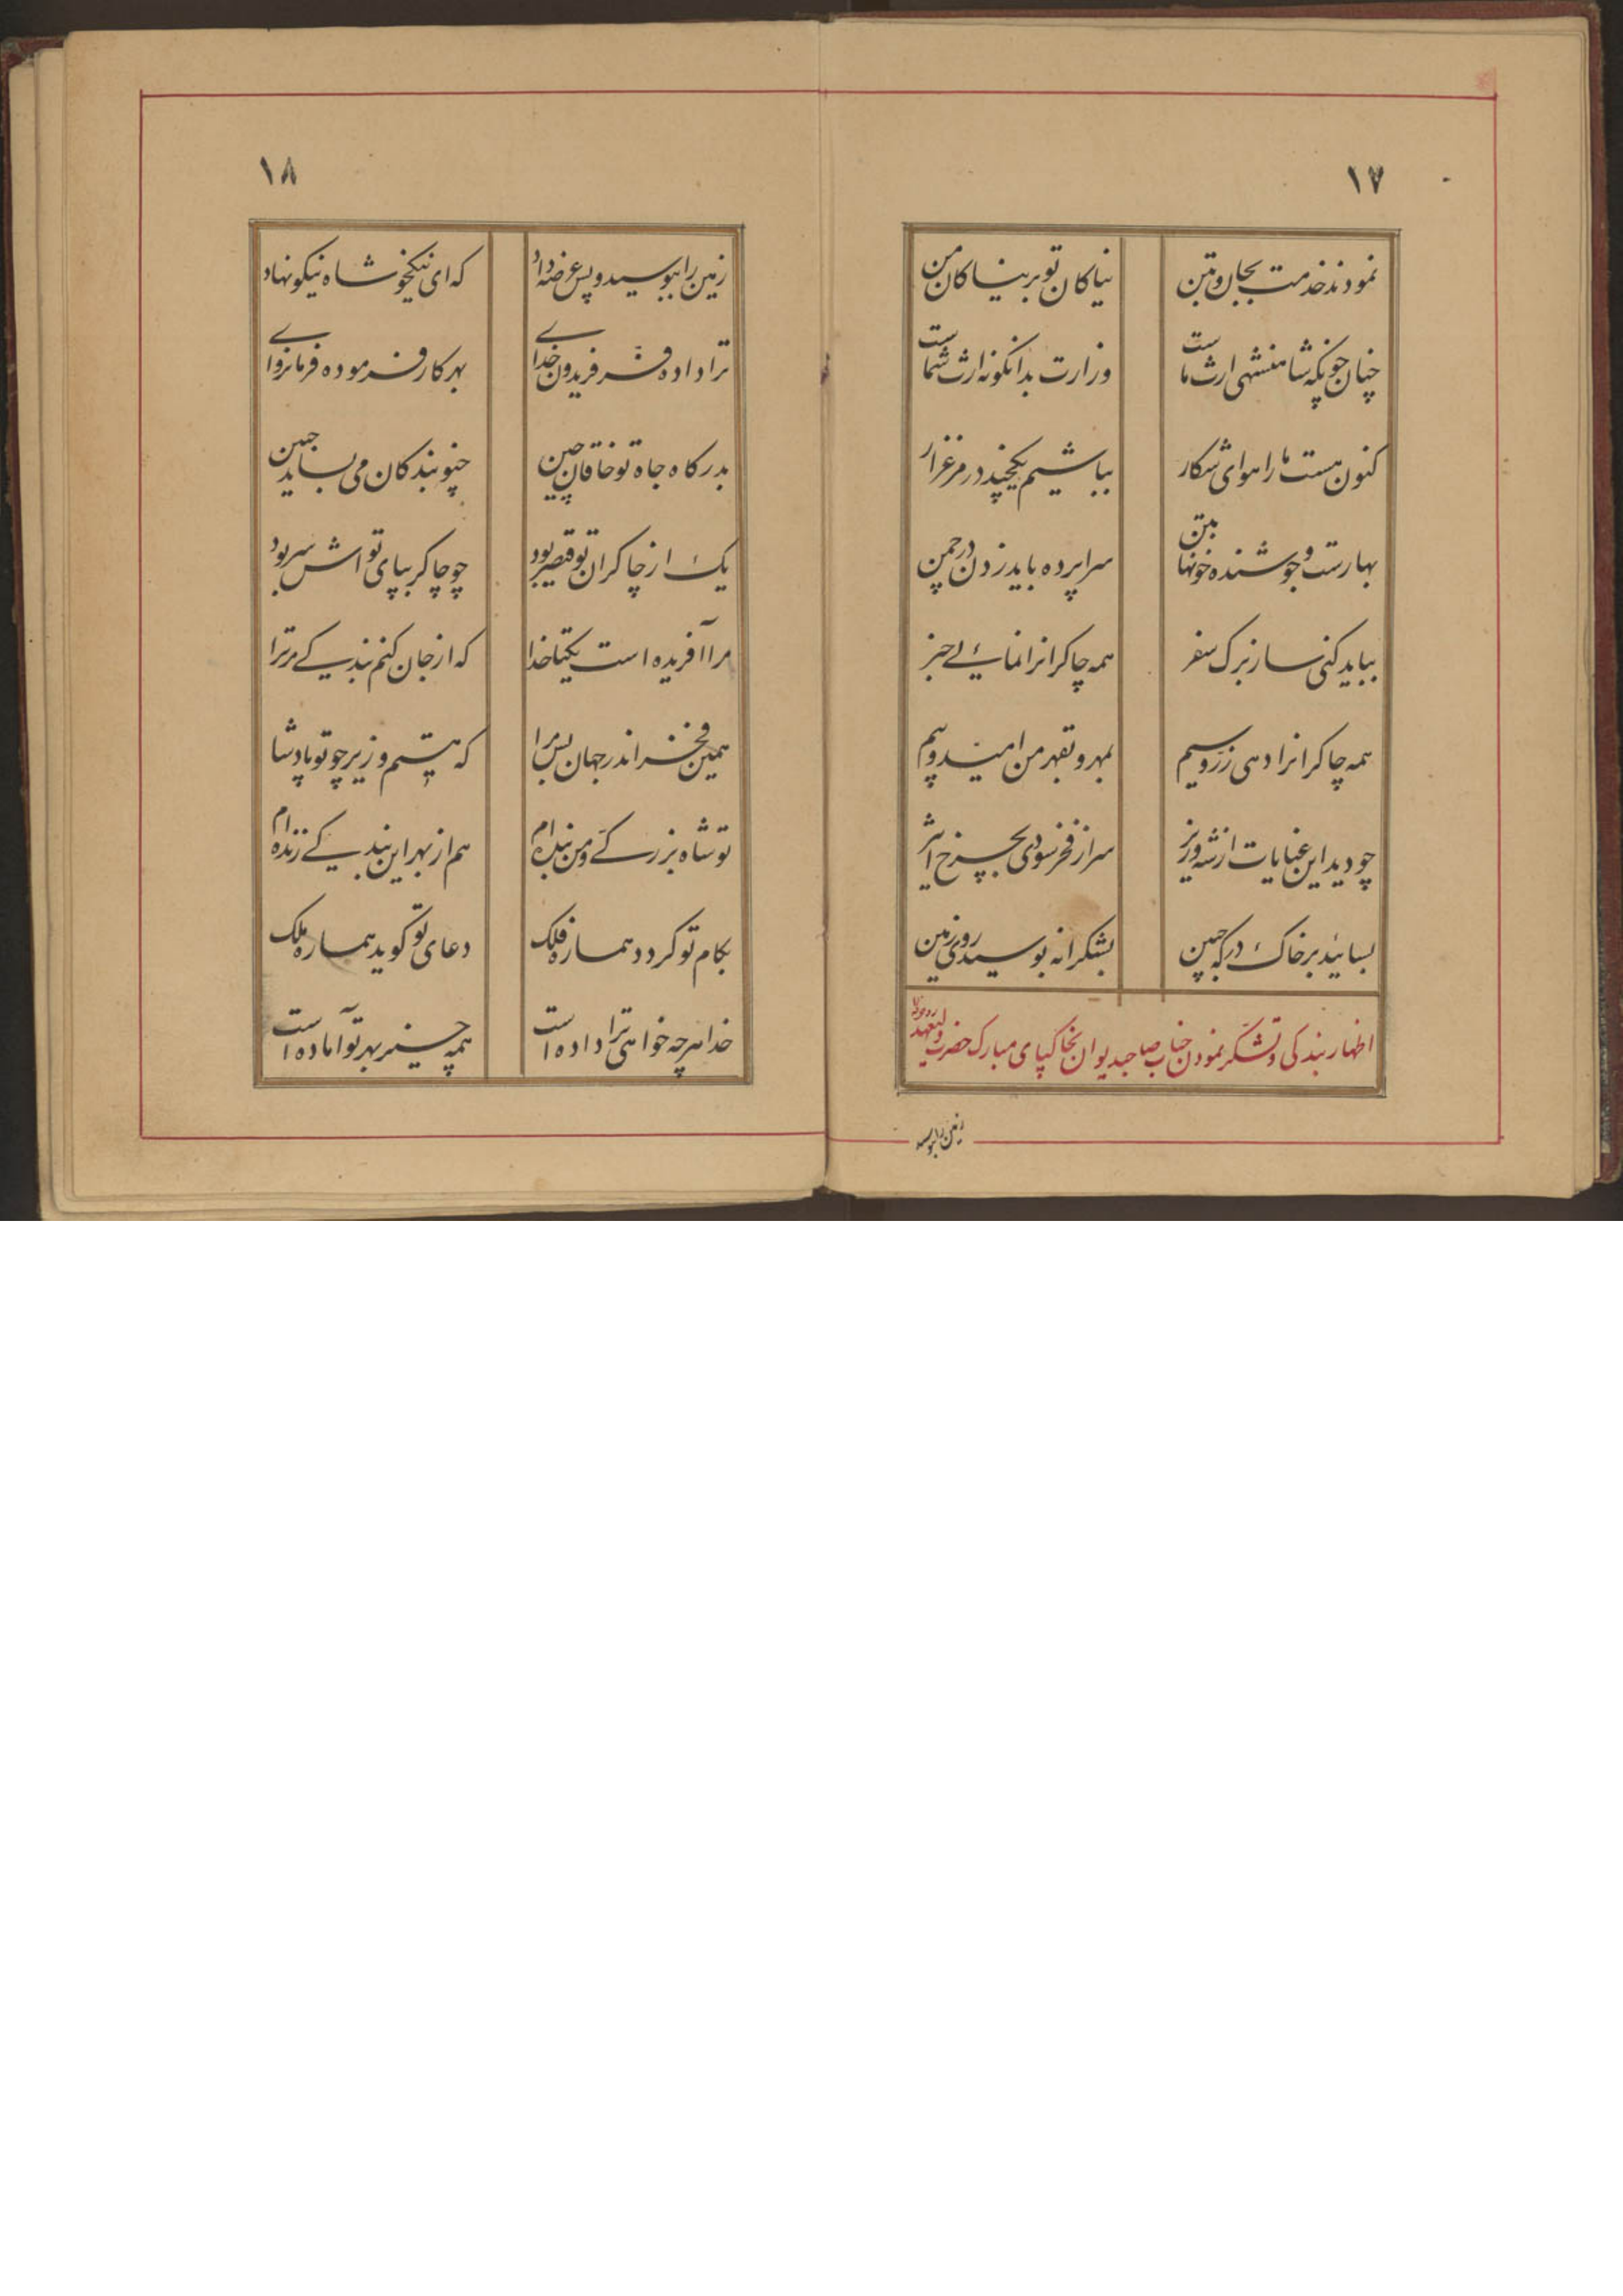 ۱۷
نمودند خدمت بجان و بتن نیاکان تو بر نیاکان من
چنان چونکه شاهنشهی ارث ماست وزارت بدانگونه ارث شماست
کنون هست ما را هوای شکار بباشیم یکچند در مرغزار
بهارست و جوشنده خونها بتن سراپرده باید زدن در چمن
بباید کنی ساز برک سفر همه چاکرانرا نمائے خبر
همه چاکرانرا دهی زرّ و سیم بمهر و بقهر من امید و بیم
چو دید این عنایات از شه وزیر سر از فخر سودی بچرخ اثیر
بسائید بر خاک درکه جبین بشکرانه بوسید روی زمین
اظهار بندکی و تشکر نمودن جناب صاحبدیوان بخاکپای مبارک حضرت ولیعهد
زمین را بوسید
۱۸
زمین را ببوسید و پس عرضه داد که ای نیکخو شاه نیکو نهاد
ترا داده فرّ فریدون خداے بهر کار فرموده فرمانرواے
بدرکاه جاه تو خاقان چین چو بندکان می بساید جبین
یک از چاکران تو قیصر بود چو چاکر بپای تو اش سر بود
مرا آفریده است یکتا خدا که از جان کنم بندکے مر ترا
همین فخر اندر جهان بس مرا که هستم وزیر چو تو پادشا
تو شاه بزرکے و من بنده ام هم از بهر این بندکے زنده ام
بکام تو کردد هماره فلک دعای تو کوید هماره ملک
خدا هرچه خواهی ترا داده است همه چیز بهر تو آماده است